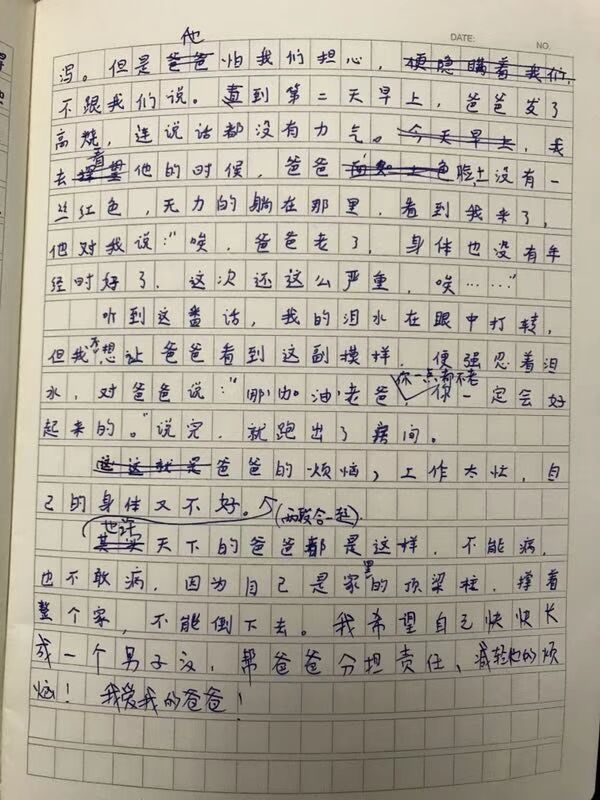 DATE:
NO.
他
泻。但是爸爸怕我们担心，便隐瞒着我们，
不跟我们说。直到第二天早上，爸爸发了
高烧，连说话都没有力气。今天早上，我
看
去探望他的时候，爸爸面如土色脸上没有一
丝红色，无力的躺在那里，看到我来了，
他对我说：“唉，爸爸老了，身体也没有年
轻时好了，这次还这么严重，唉……”
听到这番话，我的泪水在眼中打转，
但我不想让爸爸看到这副模样，便强忍着泪
你一点都不老
水，对爸爸说：“哪，加油，老爸，你一定会好
起来的。”说完，就跑出了房间。
这就是爸爸的烦恼，工作太忙，自
己的身体又不好。(两段合一起)
也许
其实天下的爸爸都是这样，不能病，
也不敢病，因为自己是家里的顶梁柱，撑着
整个家，不能倒下去。我希望自己快快长
成一个男子汉，帮爸爸分担责任、减轻他的烦
恼！我爱我的爸爸！